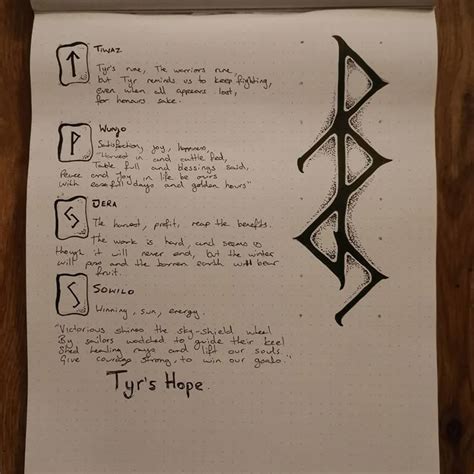 Tiwaz
Tyr's rune, The warriors rune,
but Tyr reminds us to keep fighting,
even when all appears lost,
for honours sake.
Wunjo
Satisfaction, joy, happiness,
"Harvest in and cattle fed,
Table full and blessings said,
Peace and Joy in life be ours
with easeful days and golden hours"
Jera
The harvest, profit, reap the benefits.
The work is hard, and seems as
though it will never end, but the winter
will pass and the barren earth will bear
fruit.
Sowilo
Winning, sun, energy.
"Victorious shines the sky-shield wheel
By sailors watched to guide their keel
Shed healing rays and lift our souls
Give courage strong, to win our goals."
Tyr's Hope.